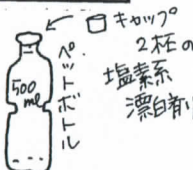 キャップ
2杯の
塩素系
漂白剤
ペットボトル
500
ml